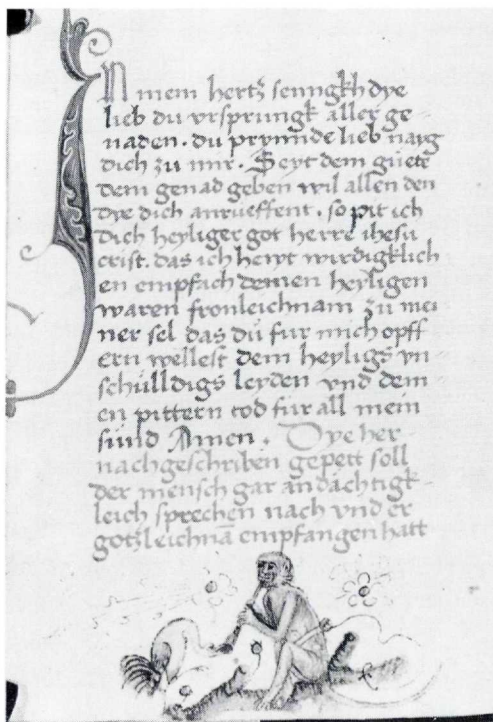 In mein hertz senngkh dye
lieb du vrsprungk aller ge
naden. du prynnde lieb nayg
dich zu mir. Seyt dem güete
dein genad geben wil allen den
dye dich anrueffent. so pit ich
dich heyliger got herre ihesu
crist. das ich hewt wirdigklich
en empfach deinen heyligen
waren fronleichnam zu mei
ner sel das dü fur mich opff
ern wellest dein heyligs vn
schülldigs leyden vnd dein
en pittern tod fur all mein
sünd Amen. Dye her
nachgeschriben gepett soll
der mensch gar andachtigk
leich sprechen nach vnd er
gotzleichnā empfangen hatt